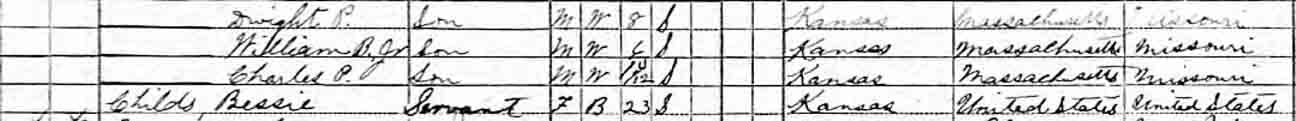 Dwight P. Son M W 8 S Kansas Massachusetts Missouri
William B. Jr Son M W 6 S Kansas Massachusetts Missouri
Charles P. Son M W S Kansas Massachusetts Missouri
Childs, Bessie Servant F B 23 S Kansas United States United States